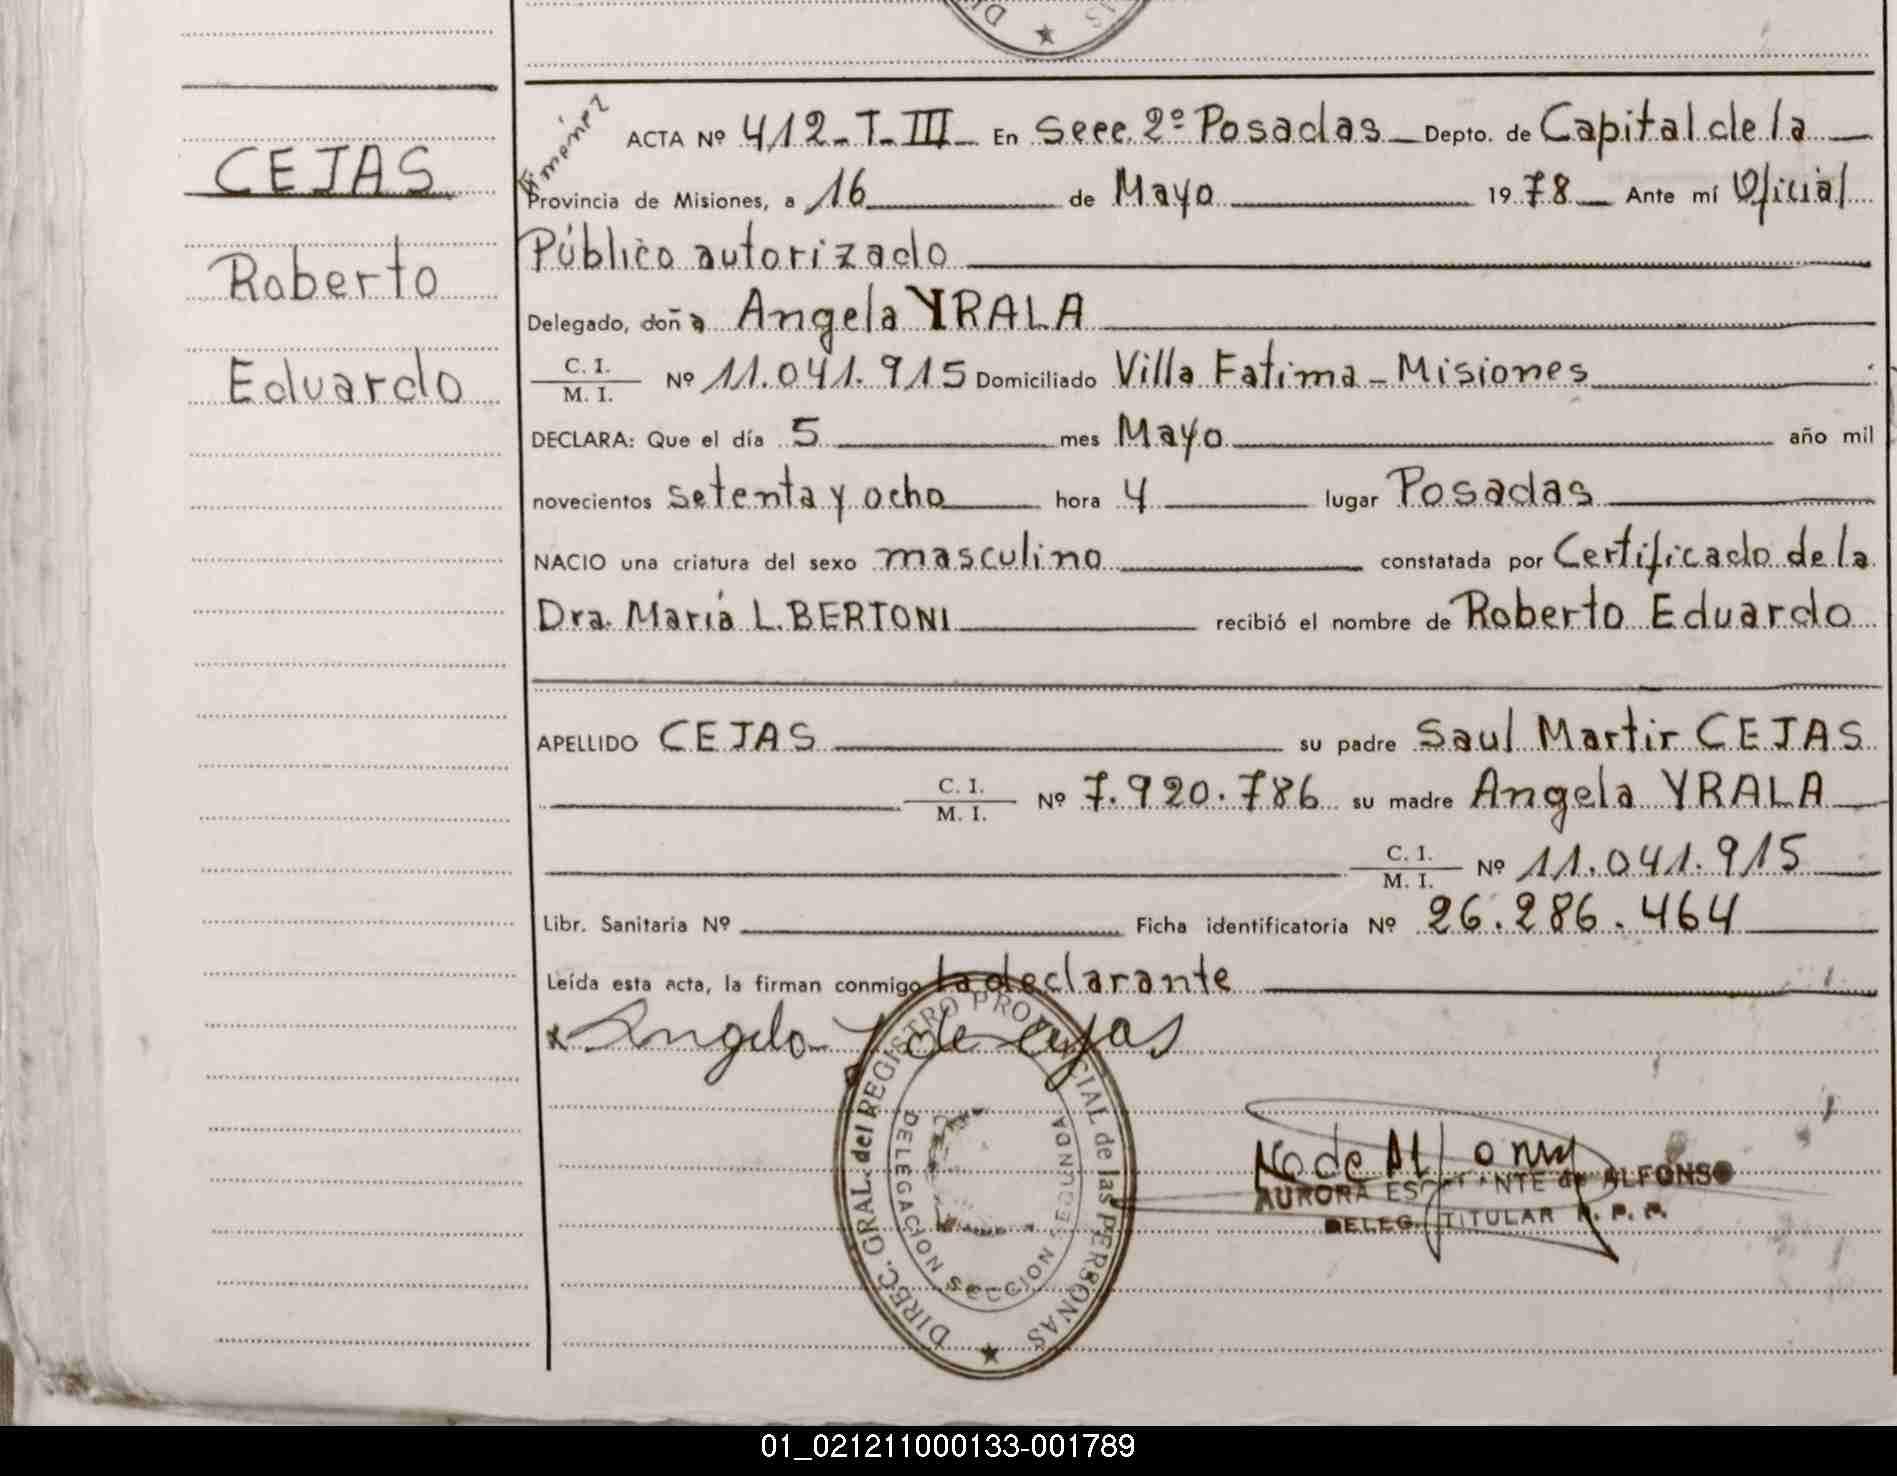 CEJAS
Roberto
Eduardo
Jiménez
ACTA Nº 412-T-III- En Secc. 2º Posadas Depto. de Capital de la
Provincia de Misiones, a 16 de Mayo 1978 Ante mí Oficial
Público autorizado
Delegado, doña Angela YRALA
C. I. / M. I. Nº 11.041.915 Domiciliado Villa Fatima - Misiones
DECLARA: Que el día 5 mes Mayo año mil
novecientos setenta y ocho hora 4 lugar Posadas
NACIO una criatura del sexo masculino constatada por Certificado de la
Dra. María L. BERTONI recibió el nombre de Roberto Eduardo
APELLIDO CEJAS su padre Saul Martir CEJAS
C. I. / M. I. Nº 7.920.786 su madre Angela YRALA
C. I. / M. I. Nº 11.041.915
Libr. Sanitaria Nº Ficha identificatoria Nº 26.286.464
Leída esta acta, la firman conmigo la declarante
x Angela Y de Cejas
DIREC. GRAL. del REGISTRO PROVINCIAL de las PERSONAS
DELEGACION SECCION SEGUNDA
AURORA ESCALANTE de ALFONSO
DELEG. TITULAR R. P. P.
01_021211000133-001789